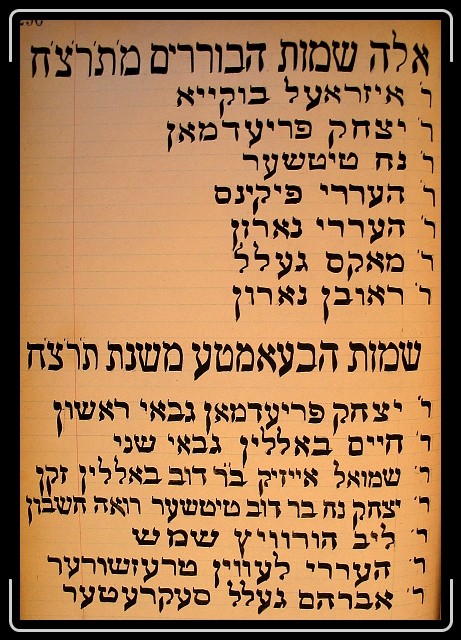 אלה שמות הבוררים מתרצ״ח
ר׳ איזראעל בוקייא
ר׳ יצחק פריעדמאן
ר׳ נח טיטשער
ר׳ הערי פיקינס
ר׳ הערי נארון
ר׳ מאקס געלל
ר׳ ראובן נארון
שמות הבעאמטע משנת תרצ״ח
ר׳ יצחק פריעדמאן גבאי ראשון
ר׳ חיים באללין גבאי שני
ר׳ שמואל אייזיק בר דוב באללין זקן
ר׳ יצחק נח בר דוב טיטשער רואה חשבון
ר׳ ליב הורוויץ שמש
ר׳ הערי לעווין טרעזשורער
ר׳ אברהם געלל סעקרעטער